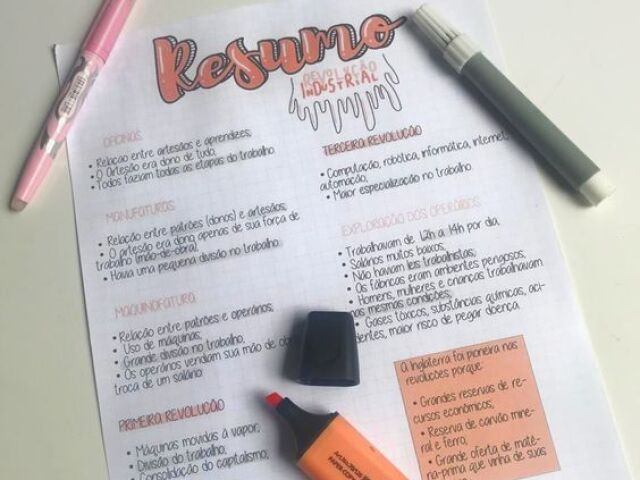 Resumo
REVOLUÇÃO
INDUSTRIAL
OFICINAS
• Relacao entre artesãos e aprendizes,
• O Artesão era dono de tudo,
• Todos faziam todas as etapas do trabalho.
MANUFATURAS
• Relação entre patrões (donos) e artesãos,
• O artesão era dono apenas de sua força de
trabalho (mão-de-obra),
• Havia uma pequena divisão no trabalho.
MAQUINOFATURA
• Relação entre patrões e operários,
• Uso de máquinas,
• Grande divisão no trabalho,
• Os operários vendiam sua mão de
troca de um salário.
PRIMEIRA REVOLUÇÃO
• Máquinas movidas à vapor,
• Divisão do trabalho,
• Consolidação do capitalismo,
TERCEIRA REVOLUÇÃO
• Computação, robótica, informática, internet,
automação,
• Maior especialização no trabalho.
EXPLORAÇÃO DOS OPERÁRIOS
• Trabalhavam de 12h a 14h por dia,
• Salários muitos baixos,
• Não haviam leis trabalhistas,
• Os fábricas eram ambientes perigosos,
• Homens, mulheres e crianças trabalhavam
nas mesmas condições,
• Gases tóxicos, substâncias químicas, aci-
dentes, maior risco de pegar doença.
A Inglaterra foi pioneira nas
revoluções porque:
• Grandes reservas de re-
cursos econômicos,
• Reserva de carvão mine-
ral e ferro,
• Grande oferta de maté-
ria-prima que vinha de suas